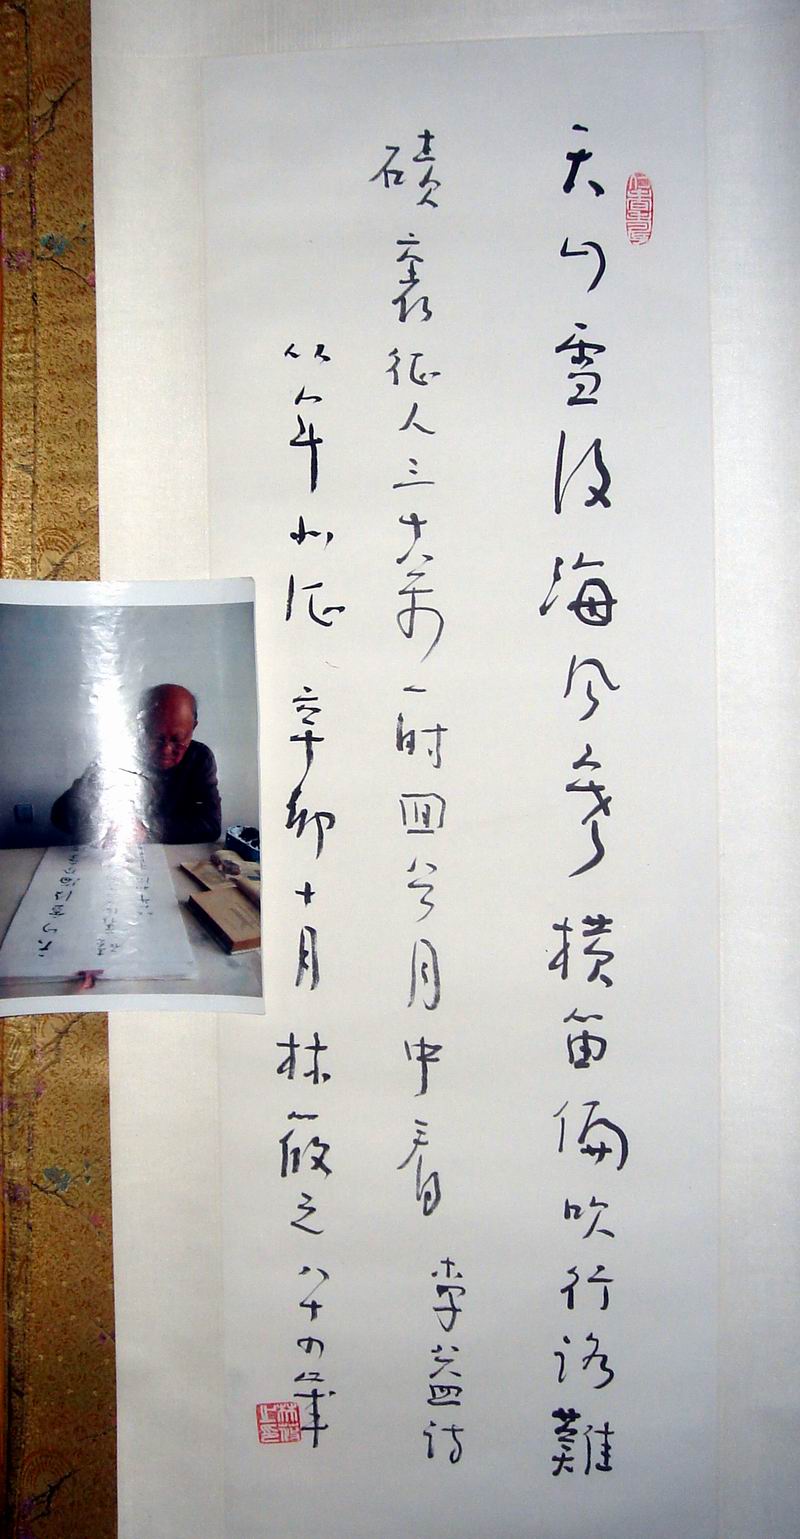 天山雪後海風寒橫笛偏吹行路難
磧裏征人三十萬一時回首月中看 李益詩
从軍北征 辛卯十月 林筱之八十四歲